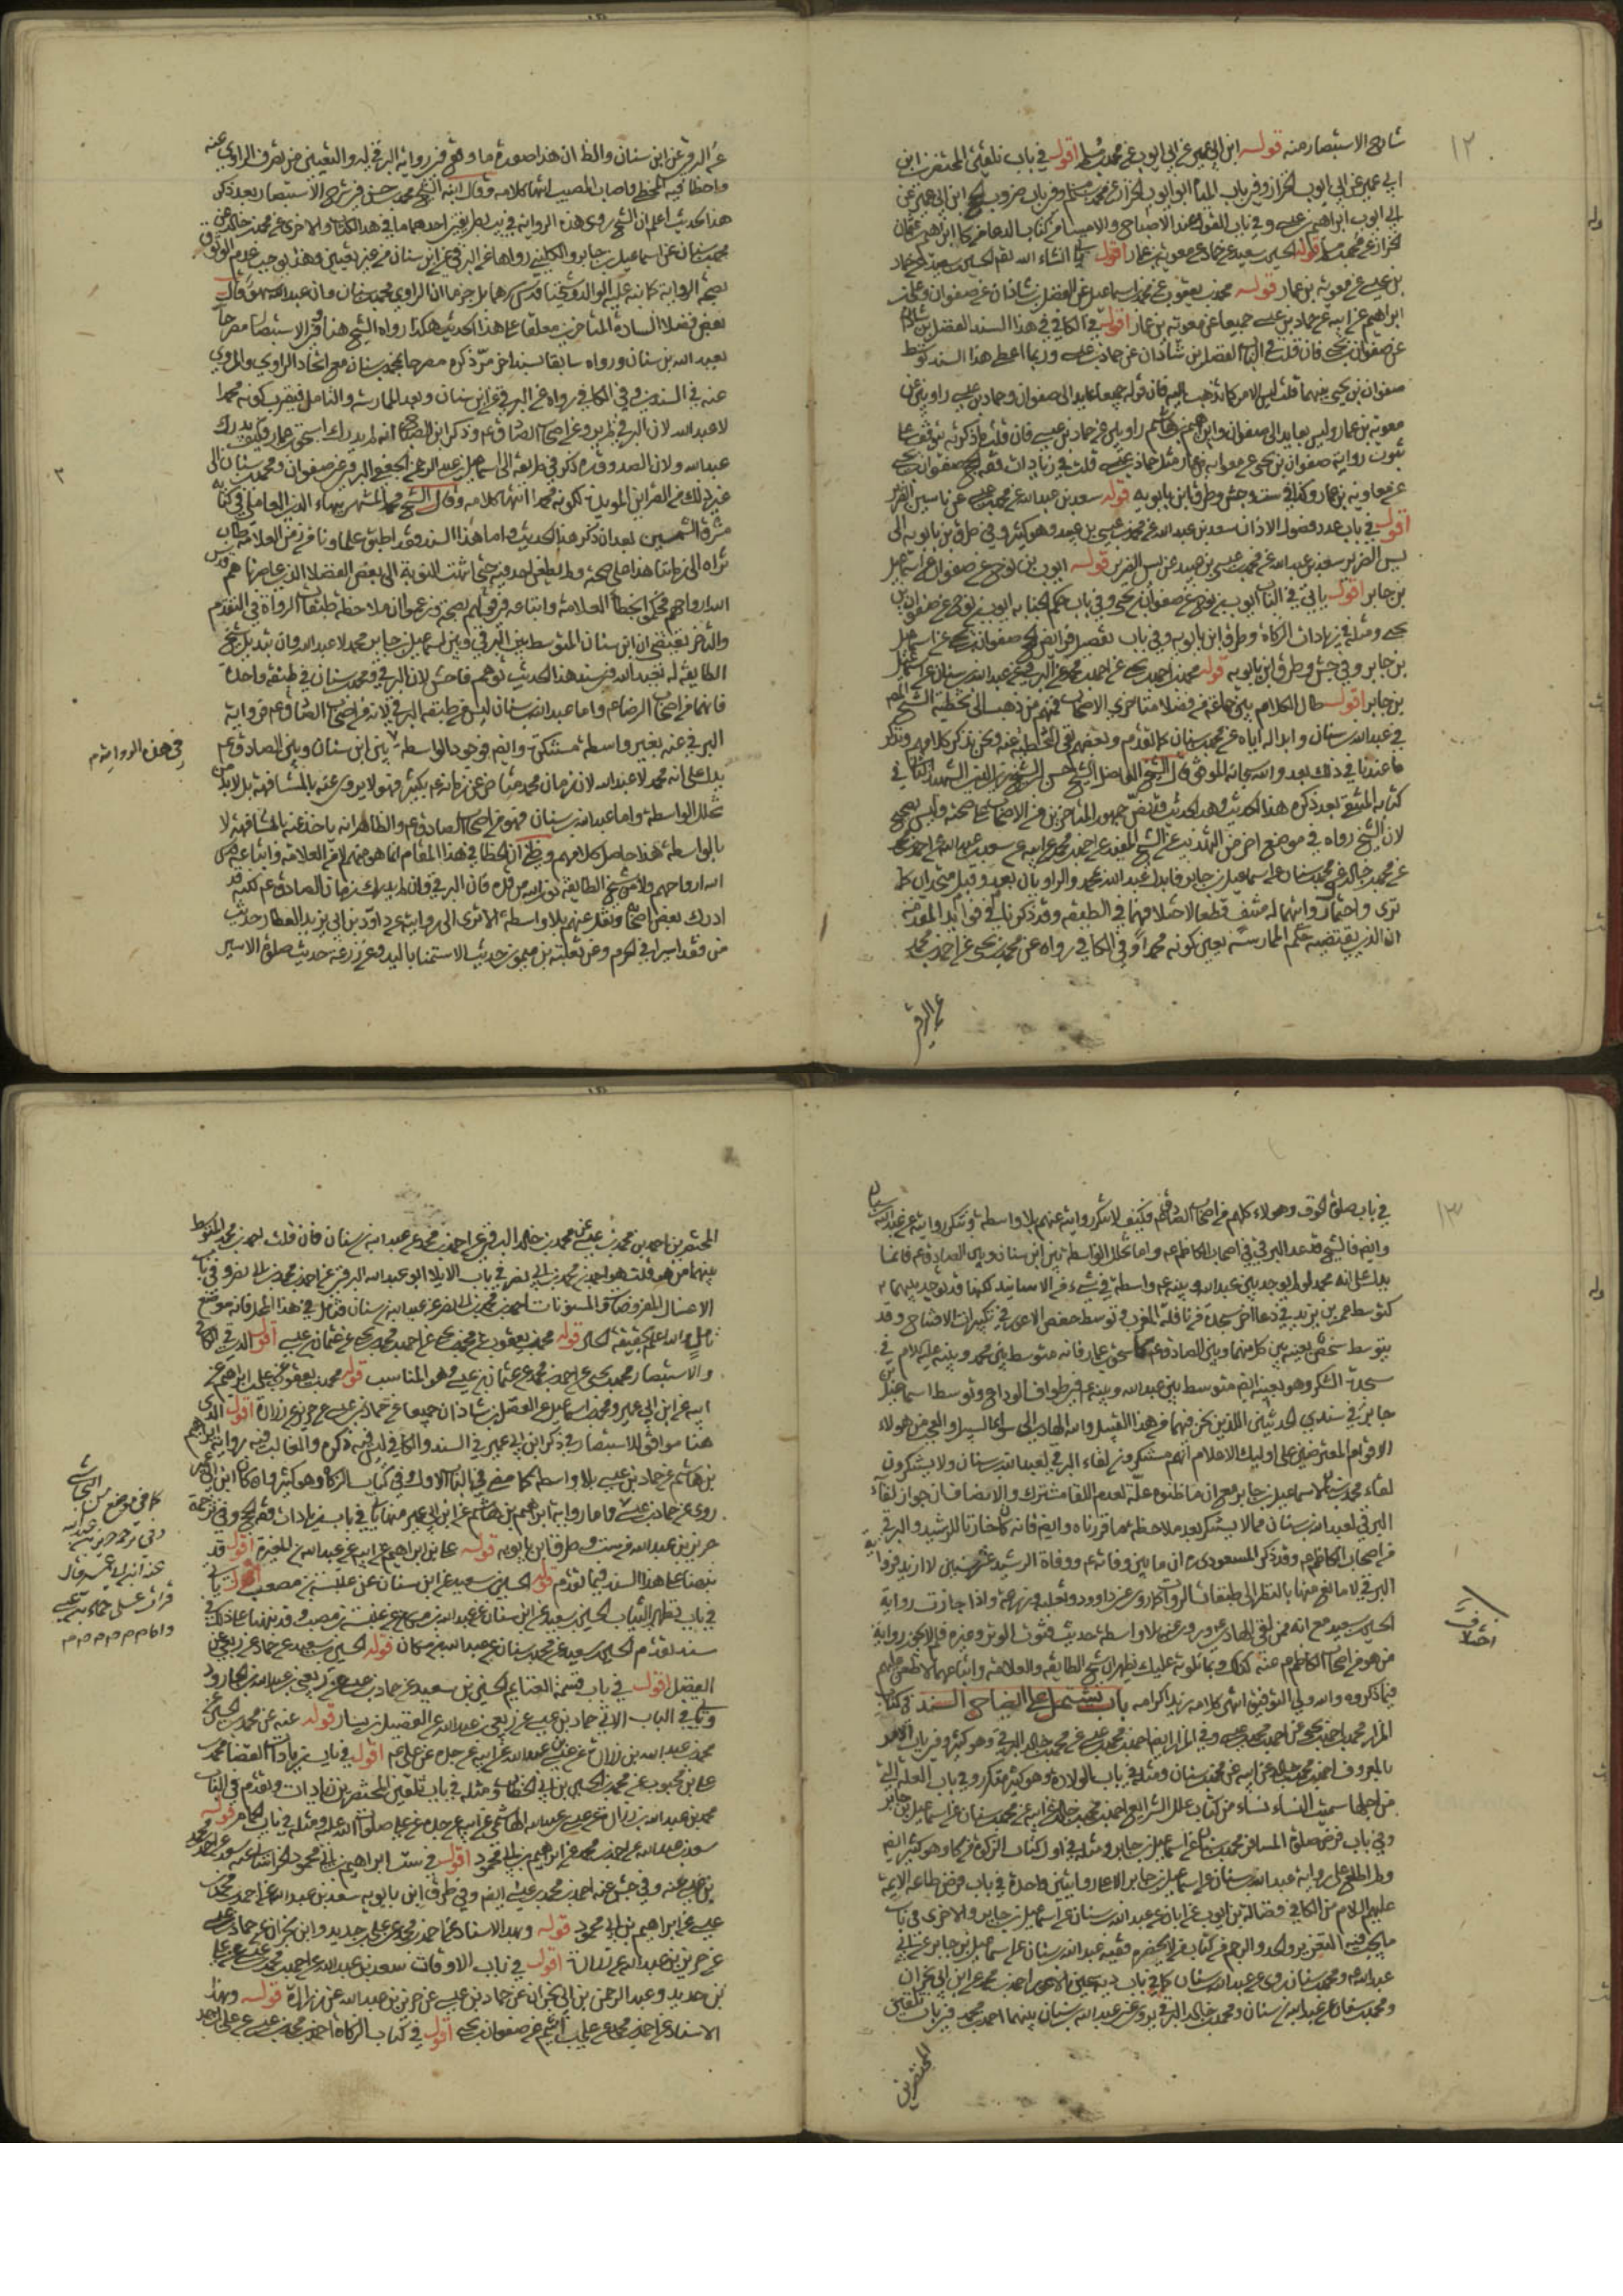 ١٢
شارح الاستبصار منه قوله ابن ابي عمير عن ابي ايوب عن محمد بن مسلم اقول في باب تلقين المحتضرين ابن
ابي عمير عن ابي ايوب الخزاز وفي باب
الى ايوب ابراهيم بن عيسى وفي باب القول عند الاصباح والامساء من كتاب الدعاء من كا ابراهيم بن عثمان
الخزاز عن محمد بن مسلم قوله الحسين بن سعيد عن حماد عن معوية بن عمار اقول
بن عيسى عن معوية بن عمار قوله محمد بن يعقوب عن محمد بن اسماعيل عن الفضل بن شاذان عن صفوان وعلي بن
ابراهيم عن ابيه عن حماد بن عيسى جميعا عن معوية بن عمار اقول في الكافي في هذا السند الفضل بن شاذان
عن صفوان بن يحيى فان قلت الفضل بن شاذان عن حماد بن عيسى وربما اعطى هذا السند توسط
صفوان بن يحيى بينهما قلت ليس الامر كما ذهبت اليه فان قوله جميعا عايد الى صفوان وحماد بن عيسى راويين عن
معوية بن عمار وليس بعايد الى صفوان وابراهيم بن هاشم راويين عن حماد بن عيسى فان قلت ما ذكرته يتوقف على
ثبوت رواية صفوان بن يحيى عن معوية بن عمار مثل حماد بن عيسى قلت في زيادات فقه الحج صفوان بن يحيى
عن معاوية بن عمار وكذا في ست وجش وطرق ابن بابويه قوله سعد بن عبد الله عن محمد بن عيسى عن ياسين الضرير
اقول في باب عدد فصول الاذان سعد بن عبد الله عن محمد بن عيسى بن عبيد وهو كثير وفي طرق بن بابويه الى
يس الضرير سعد بن عبد الله عن محمد بن عيسى بن عبيد عن يس الضرير قوله ايوب بن نوح عن صفوان عن اسماعيل
بن جابر اقول ياتي في الباب ايوب بن نوح عن صفوان بن يحيى وفي باب حكم الجنابة ايوب بن نوح عن صفوان بن
يحيى ومثله في زيادات الزكاة وطرق ابن بابويه وفي باب تفصيل فرائض الحج صفوان بن يحيى عن اسماعيل
بن جابر وفي جش وطرق ابن بابويه قوله محمد بن احمد بن يحيى عن احمد بن محمد عن البرقي عن عبد الله بن سنان عن اسماعيل
بن جابر اقول طال الكلام بين جماعة من فضلاء متاخري الاصحاب فمنهم من ذهب الى تخطئة الشيخ
في عبد الله بن سنان وابداله اياه عن محمد بن سنان كما تقدم وبعضهم نفى التخطئة عنه ونحن نذكر كلامهم ونذكر
ما عندنا في ذلك بعد والله سبحانه الموفق قال الشيخ الفاضل الشيخ حسن بن الشيخ زين الدين الشهيد الثاني في
كتابه المنتقى بعد ذكره هذا الحديث وهذا الحديث جمهور المتاخرين من الاصحاب على صحته وليس بصحيح
لان الشيخ رواه في موضع اخر من التهذيب عن الشيخ المفيد عن احمد بن محمد عن ابيه عن سعد بن عبد الله عن احمد بن محمد
عن محمد بن خالد عن محمد بن سنان عن اسماعيل بن جابر فابدل عبد الله بمحمد والراويان بعد وقبل متحدان كما
ترى واحتمال روايتهما له منتف قطعا لاختلافهما في الطبقة وقد ذكرنا في فوايد المقدمة
ان الذي يقتضيه حكم الممارسة تعين كونه محمدا وفي الكافي رواه عن محمد بن يحيى عن احمد بن محمد
عن البرقي
عن البرقي عن ابن سنان والظ ان هذا صورة ما وقع في رواية البرقي له والتعيين من تصرف الراوي عنه
واخطأ فيه المخطي واصاب المصيب انتهى كلامه وقال ابنه الشيخ محمد بن حسن في شرح الاستبصار بعد ذكر
هذا الحديث اعلم ان الشيخ روى هذه الرواية في يب بطريقين احدهما ما في هذا الكتاب والاخرى عن محمد بن خالد عن
محمد بن سنان عن اسماعيل بن جابر والكليني رواها عن البرقي عن ابن سنان من غير تعيين وهذا يوجب عدم الوثوق
بصحة الرواية كما نبه عليه الوالد وشيخنا قدس سرهما بل جزما ان الراوي محمد بن سنان وان عبد الله سهو وقال
بعض فضلاء السادة المتاخرين معلقا على هذا الحديث هكذا رواه الشيخ هنا وفي الاستبصار مصرحا
بعبد الله بن سنان ورواه سابقا بسند اخر مر ذكره مصرحا بمحمد بن سنان مع اتحاد الراوي والمروي
عنه في السندين وفي الكافي رواه عن البرقي عن ابن سنان وبعد الممارسة والتامل فيقرب كونه محمدا
لا عبد الله لان البرقي لم يرو عن اصحاب الصادق ع وذكر ابن الغضايري انه لم يدرك اسحق بن عمار وكيف يدرك
عبد الله ولان الصدوق ره ذكر في طريقه الى اسماعيل بن عبد الرحمن الجعفي البرقي عن صفوان ومحمد بن سنان الى
غير ذلك من القراين المويدة لكونه محمدا انتهى كلامه وقال الشيخ محمد المشتهر ببهاء الدين العاملي في كتابه
مشرق الشمسين بعد ان ذكر هذا الحديث واما هذا السند فقد اطبق علماونا من زمن العلامة طاب
ثراه الى زماننا هذا على صحته ولم يطعن احد فيه حتى انتهت النوبة الى بعض الفضلاء الذين عاصرناهم قدس
الله ارواحهم فحكموا بخطأ العلامة واتباعه في قولهم بصحته وزعموا ان ملاحظة طبقات الرواة في التقدم
والتاخر يقتضي ان ابن سنان المتوسط بين البرقي وبين اسماعيل بن جابر محمد لا عبد الله وان تبديل شيخ
الطايفة له بعبد الله في سند هذا الحديث توهم فاحش لان البرقي ومحمد بن سنان في طبقة واحدة
فانهما من اصحاب الرضا ع واما عبد الله بن سنان ليس من طبقة البرقي لانه من اصحاب الصادق ع فرواية
البرقي عنه بغير واسطة مستنكرة وايضم فوجود الواسطة بين ابن سنان وبين الصادق ع
في هذه الرواية م
يدل على انه محمد لا عبد الله لان زمان محمد متاخر عن زمانه ع بكثير فهو لا يروي عنه بالمشافهة بل لابد من
تخلل الواسطة واما عبد الله بن سنان فهو من اصحاب الصادق ع والظاهر انه ياخذ عنه بالمشافهة لا
بالواسطة هذا حاصل كلامهم ويظن ان الخطأ في هذا المقام انما هو منهم لا من العلامة واتباعه قدس
الله ارواحهم ولا من شيخ الطايفة نور الله مرقده فان البرقي وان لم يدرك زمان الصادق ع لكنه قد
ادرك بعض اصحابه ونقل عنهم بلا واسطة الا ترى الى روايته عن داود بن ابي يزيد العطار حديث
من قتل اسدا في الحرم وعن ثعلبة بن ميمون حديث الاستمناء باليد وعن زرعة حديث صلوة الاسير
١٣
في باب صلوة الخوف وهولاء كلهم من اصحاب الصادق ع فكيف لا تنكر روايته عنهم بلا واسطة وتنكر روايته عن عبد الله بن سنان
وايضم فالشيخ قد عد البرقي في اصحاب الكاظم ع واما تخلل الواسطة بين ابن سنان وبين الصادق ع فانما
يدل على انه محمد لو لم يوجد بين عبد الله وبينه ع واسطة في شيء من الاسانيد لكنها قد توجد بينهما
كتوسط عمر بن يزيد في دعاء اخر سجدة من نافلة المغرب وتوسط حفص الاعور في تكبيرات الافتتاح وقد
يتوسط شخص بعينه بين كل منهما وبين الصادق ع كاسحق بن عمار فانه متوسط بين محمد وبينه عليه السلام في
سجدة الشكر وهو بعينه ايضم متوسط بين عبد الله وبينه ع في طواف الوداع وتوسط اسماعيل بن
جابر في سندي الحديثين اللذين نحن فيهما من هذا القبيل والله الهادي الى سواء السبيل والعجب من هولاء
الاقوام المعترضين على اوليك الاعلام انهم مستنكرون لقاء البرقي لعبد الله بن سنان ولا يستنكرون
لقاء محمد بن سنان لاسماعيل بن جابر مع ان ما ظنوه علة لعدم اللقاء مشترك والانصاف ان جواز لقاء
البرقي لعبد الله بن سنان مما لا يستنكر بعد ملاحظة ما قررناه وايضم فانه كان خازنا للرشيد والبرقي
من اصحاب الكاظم ع وقد ذكر المسعودي ره ان ما بين وفاته ع ووفاة الرشيد عشر سنين لا ازيد فرواية
البرقي لا مانع منها بالنظر الى طبقات الرواة كما روى عن داود وثعلبة وزرعة واذا جازت رواية
الحسين بن سعيد مع انه ممن لقي الهادي ع وروى عنه بلا واسطة حديث قنوت الوتر وغيره فلم لا يجوز رواية
اختلاف
من هو من اصحاب الكاظم ع عنه كذلك وبما تلوته عليك يظهر ان شيخ الطايفة والعلامة واتباعهما لا طعن عليهم
فيما ذكروه والله ولي التوفيق انتهى كلامه زيد اكرامه باب يشتمل على ايضاح السند في كتاب
المزار محمد بن احمد بن يحيى عن احمد بن محمد بن عيسى وفي المزار ايضم احمد بن محمد بن عيسى عن محمد بن خالد البرقي وهو كثير وفي باب الامر
بالمعروف احمد بن محمد بن خالد عن ابيه عن محمد بن سنان ومثله في باب الولادة وهو كثير متكرر وفي باب العلة التي
من اجلها سميت النساء نساء من كتاب علل الشرايع احمد بن محمد بن خالد عن ابيه عن محمد بن سنان عن اسماعيل بن جابر
وفي باب فرض صلوة المسافر محمد بن سنان عن اسماعيل بن جابر ومثله في اول كتاب الزكوة من كا وهو كثير ايضم
ولم اطلع على رواية عبد الله بن سنان عن اسماعيل بن جابر الا على روايتين واحدة في باب فرض طاعة الايمة
عليهم السلام من الكافي فضالة بن ايوب عن ابان عن عبد الله بن سنان عن اسماعيل بن جابر والاخرى في باب
ما يجب فيه التعزير والحد والرجم من كتاب من لا يحضره فقيه عبد الله بن سنان عن اسماعيل بن جابر عن ابي
عبد الله ع ومحمد بن سنان روى عن عبد الله بن سنان كما في باب دية عين الاعور احمد بن محمد عن ابن ابي نجران
ومحمد بن سنان عن عبد الله بن سنان ومحمد بن خالد البرقي يروي عن عبد الله بن سنان بينهما احمد بن محمد في باب تلقين
المحتضرين
المحتضرين احمد بن محمد بن عيسى عن محمد بن خالد البرقي عن احمد بن محمد عن عبد الله بن سنان فان قلت احمد بن محمد المتوسط
بينهما من هو قلت هو احمد بن محمد بن ابي نصر في باب الايلاء ابو عبد الله البرقي عن احمد بن محمد بن ابي نصر وفي باب
الاغسال المفروضات والمسنونات احمد بن محمد بن ابي نصر عن عبد الله بن سنان فتامل في هذا المحل فانه موضع
تامل والله اعلم بحقيقة الحال قوله محمد بن يعقوب عن محمد بن يحيى عن احمد بن محمد بن يحيى عن عثمان بن عيسى اقول الذي في الكافي
والاستبصار محمد بن يحيى عن احمد بن محمد عن عثمان بن عيسى وهو المناسب قوله محمد بن يعقوب عن علي بن ابراهيم عن
ابيه عن ابن ابي عمير ومحمد بن اسماعيل عن الفضل بن شاذان جميعا عن حماد بن عيسى عن حريز عن زرارة اقول الذي
هنا موافق للاستبصار في ذكر ابن ابي عمير في السند والكافي ليس فيه ذكره والغالب فيه رواية ابراهيم
بن هاشم عن حماد بن عيسى بلا واسطة كما مضى في الباب الاول وفي كتاب الزكاة وهو كثير وان كان ابن ابي عمير
روى عن حماد بن عيسى واما رواية ابراهيم بن هاشم عن ابن ابي عمير منها ياتي في باب زيادات فقه الحج وفي ترجمة
كما في موضع من النجاشي
وفي ترجمة حريز بن عبد الله
حريز بن عبد الله في ست وطرق ابن بابويه قوله علي بن ابراهيم عن ابيه عن عبد الله بن المغيرة اقول قد
نبهنا على هذا السند فيما تقدم قوله الحسين بن سعيد عن ابن سنان عن عنبسة بن مصعب اقول ياتي
في باب تطهير الثياب الحسين بن سعيد عن ابن سنان عن عبد الله بن مسكان عن عنبسة بن مصعب وقد نبهنا على ذلك في
سند تقدم الحسين بن سعيد عن محمد بن سنان عن عبد الله بن مسكان قوله الحسين بن سعيد عن حماد عن ربعي عن
الفضيل اقول في باب قسمة الغنايم الحسين بن سعيد عن حماد بن عيسى عن ربعي بن عبد الله بن الجارود
وياتي في الباب الاتي حماد بن عيسى عن ربعي بن عبد الله عن الفضيل بن يسار قوله عنه عن محمد بن الحسين عن
محمد بن عبد الله بن زرارة عن عيسى بن عبد الله عن ابيه عن جده عن علي ع اقول في باب زيادات القضايا محمد بن
علي بن محبوب عن محمد بن الحسين بن ابي الخطاب ومثله في باب تلقين المحتضرين زيادات وتقدم في الباب
محمد بن عبد الله بن زرارة عن عيسى بن عبد الله الهاشمي عن ابيه عن جده عن علي صلوات الله عليه ومثله في باب قوله
سعد بن عبد الله عن احمد بن محمد عن ابراهيم بن ابي محمود اقول في ست ابراهيم بن ابي محمود الخراساني
بن عيسى عنه وفي جش عنه احمد بن محمد بن عيسى ايضم وفي طرق ابن بابويه سعد بن عبد الله عن احمد بن محمد بن
عيسى عن ابراهيم بن ابي محمود قوله وبهذا الاسناد عن احمد بن محمد عن علي بن حديد وابن ابي نجران عن حماد بن عيسى
عن حريز بن عبد الله عن زرارة اقول في باب الاوقات سعد بن عبد الله عن احمد بن محمد بن عيسى عن علي
بن حديد وعبد الرحمن بن ابي نجران عن حماد بن عيسى عن حريز بن عبد الله عن زرارة قوله وبهذا
الاسناد عن احمد بن محمد عن علي بن اشيم عن صفوان بن يحيى اقول في كتاب الزكاة احمد بن محمد بن عيسى عن علي بن احمد